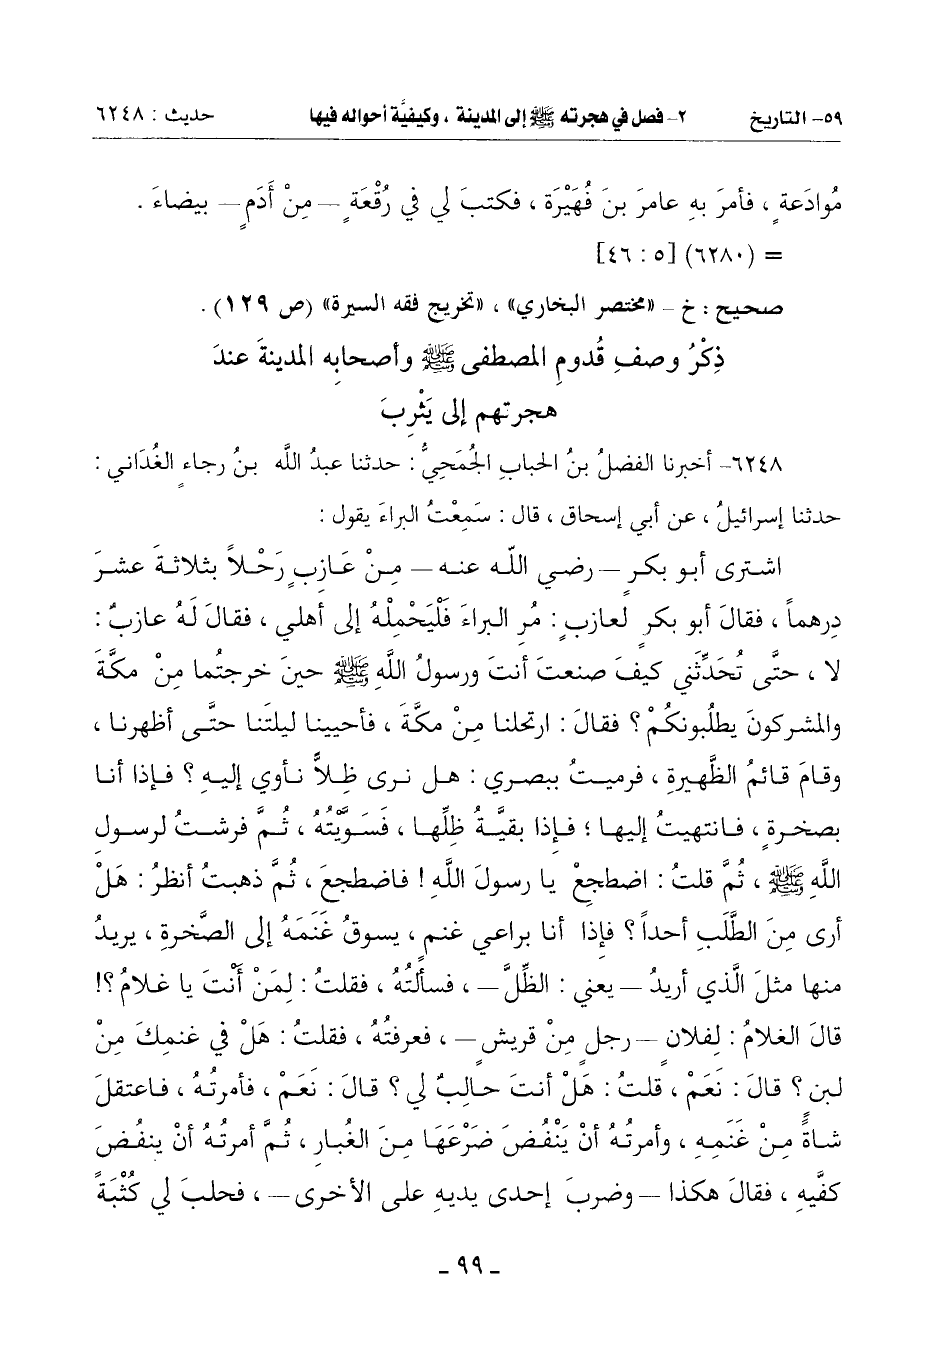 ٥٩- التاريخ ٢- فصل في هجرته ﷺ إلى المدينة ، وكيفيَّة أحواله فيها حديث : ٦٢٤٨
مُوادَعةٍ ، فأمرَ بهِ عامرَ بنَ فُهَيْرَة ، فكتبَ لي في رُقْعَةٍ — مِنْ أَدَمٍ — بيضاءَ .
= (٦٢٨٠) [٥ : ٤٦]
صحيح : خ - «مختصر البخاري» ، «تخريج فقه السيرة» (ص ١٢٩) .
ذِكْرُ وصفِ قُدومِ المصطفى ﷺ وأصحابِه المدينةَ عندَ
هجرتهم إلى يَثْرِبَ
٦٢٤٨- أخبرنا الفضلُ بنُ الحبابِ الجُمَحِيُّ : حدثنا عبدُ اللَّه بنُ رجاءٍ الغُدَاني :
حدثنا إسرائيلُ ، عن أبي إسحاق ، قال : سَمِعْتُ البراءَ يقول :
اشترى أبو بكرٍ — رضي اللَّه عنه — مِنْ عَازِبٍ رَحْلاً بثلاثةَ عشرَ
دِرهماً ، فقالَ أبو بكرٍ لعازبٍ : مُرِ البراءَ فَلْيَحْمِلْهُ إلى أهلي ، فقالَ لَهُ عازبٌ :
لا ، حتَّى تُحَدِّثَني كيفَ صنعتَ أنتَ ورسولُ اللَّهِ ﷺ حينَ خرجتُما مِنْ مكَّةَ
والمشركونَ يطلُبونكُمْ ؟ فقالَ : ارتحلنا مِنْ مكَّةَ ، فأحيينا ليلتَنا حتَّى أظهرنا ،
وقامَ قائمُ الظَّهيرةِ ، فرميتُ ببصري : هل نرى ظِلاًّ نأوي إليهِ ؟ فإذا أنا
بصخرةٍ ، فانتهيتُ إليها ؛ فإذا بقيَّةُ ظلِّها ، فَسَوَّيْتُهُ ، ثُمَّ فرشتُ لرسولِ
اللَّهِ ﷺ ، ثُمَّ قلتُ : اضطجعْ يا رسولَ اللَّهِ ! فاضطجعَ ، ثمَّ ذهبتُ أنظرُ : هَلْ
أرى مِنَ الطَّلَبِ أحداً ؟ فإذا أنا براعي غنمٍ ، يسوقُ غَنَمَهُ إلى الصَّخرةِ ، يريدُ
منها مثلَ الَّذي أريدُ — يعني : الظِّلَّ — ، فسألتُهُ ، فقلتُ : لِمَنْ أَنْتَ يا غلامُ ؟!
قالَ الغلامُ : لِفلانٍ — رجلٍ مِنْ قريشٍ — ، فعرفتُهُ ، فقلتُ : هَلْ في غنمِكَ مِنْ
لبنٍ ؟ قالَ : نَعَمْ ، قلتُ : هَلْ أنتَ حالِبٌ لي ؟ قالَ : نَعَمْ ، فأمرتُهُ ، فاعتقلَ
شاةً مِنْ غَنَمِهِ ، وأمرتُهُ أنْ يَنْفُضَ ضَرْعَهَا مِنَ الغُبارِ ، ثُمَّ أمرتُهُ أنْ ينفُضَ
كفَّيهِ ، فقالَ هكذا — وضربَ إحدى يديهِ على الأخرى — ، فحلبَ لي كُثْبَةً
- ٩٩ -